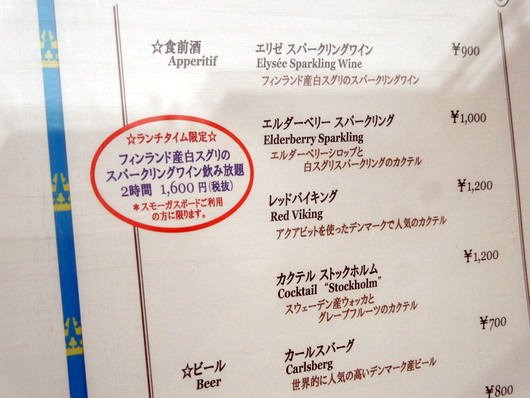 ☆食前酒
Apperitif
エリゼ スパークリングワイン ¥900
Elysée Sparkling Wine
フィンランド産白スグリのスパークリングワイン
エルダーベリー スパークリング ¥1,000
Elderberry Sparkling
エルダーベリーシロップと
白スグリスパークリングのカクテル
☆ランチタイム限定☆
フィンランド産白スグリの
スパークリングワイン飲み放題
2時間 1,600円(税抜)
＊スモーガスボードご利用
の方に限ります。
レッドバイキング ¥1,200
Red Viking
アクアビットを使ったデンマークで人気のカクテル
カクテル ストックホルム ¥1,200
Cocktail “Stockholm”
スウェーデン産ウォッカと
グレープフルーツのカクテル
☆ビール
Beer
カールスバーグ ¥700
Carlsberg
世界的に人気の高いデンマーク産ビール
¥800